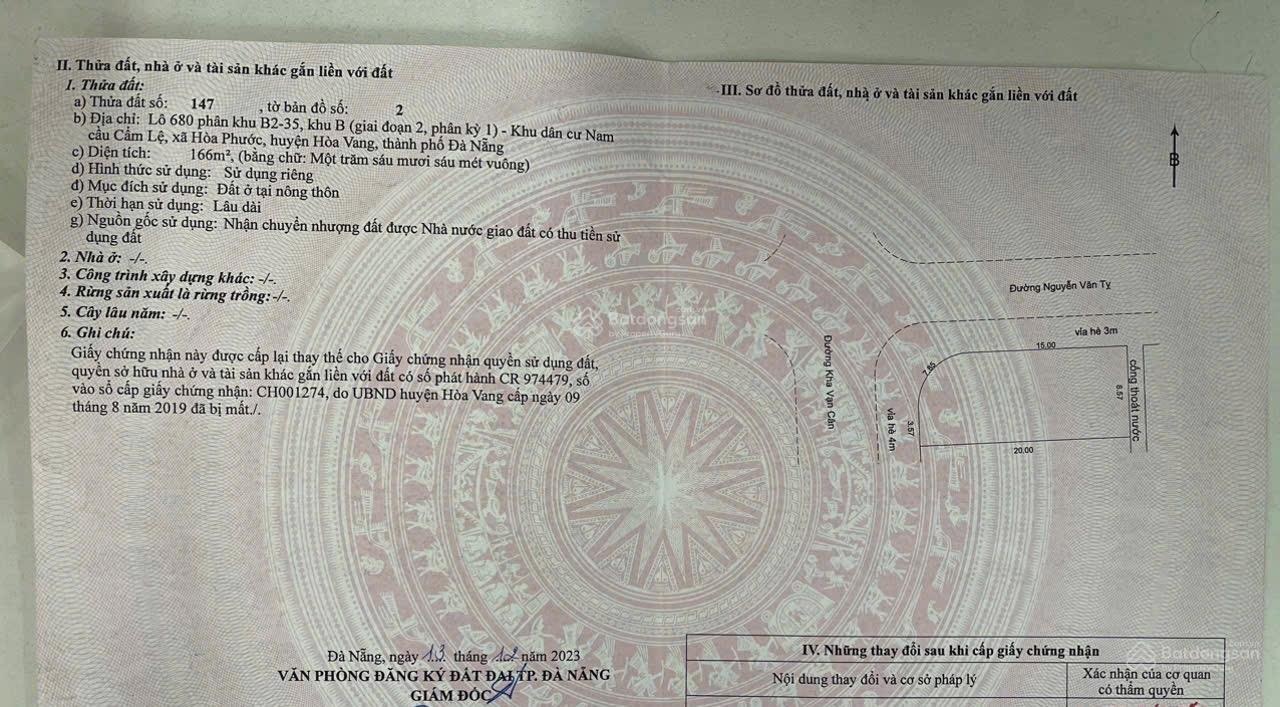 II. Thửa đất, nhà ở và tài sản khác gắn liền với đất
1. Thửa đất:
a) Thửa đất số: 147 , tờ bản đồ số: 2
b) Địa chỉ: Lô 680 phân khu B2-35, khu B (giai đoạn 2, phân kỳ 1) - Khu dân cư Nam
cầu Cẩm Lệ, xã Hòa Phước, huyện Hòa Vang, thành phố Đà Nẵng
c) Diện tích: 166m², (bằng chữ: Một trăm sáu mươi sáu mét vuông)
d) Hình thức sử dụng: Sử dụng riêng
đ) Mục đích sử dụng: Đất ở tại nông thôn
e) Thời hạn sử dụng: Lâu dài
g) Nguồn gốc sử dụng: Nhận chuyển nhượng đất được Nhà nước giao đất có thu tiền sử
dụng đất
2. Nhà ở: -/-.
3. Công trình xây dựng khác: -/-.
4. Rừng sản xuất là rừng trồng: -/-.
5. Cây lâu năm: -/-.
6. Ghi chú:
Giấy chứng nhận này được cấp lại thay thế cho Giấy chứng nhận quyền sử dụng đất,
quyền sở hữu nhà ở và tài sản khác gắn liền với đất có số phát hành CR 974479, số
vào sổ cấp giấy chứng nhận: CH001274, do UBND huyện Hòa Vang cấp ngày 09
tháng 8 năm 2019 đã bị mất./.
Đà Nẵng, ngày 13 tháng 12 năm 2023
VĂN PHÒNG ĐĂNG KÝ ĐẤT ĐAI TP. ĐÀ NẴNG
GIÁM ĐỐC
III. Sơ đồ thửa đất, nhà ở và tài sản khác gắn liền với đất
B
Đường Nguyễn Văn Tỵ
vỉa hè 3m
15.00
7.85
Đường Kha Vạn Cân
vỉa hè 4m
3.57
8.57
cống thoát nước
20.00
IV. Những thay đổi sau khi cấp giấy chứng nhận
Nội dung thay đổi và cơ sở pháp lý
Xác nhận của cơ quan
có thẩm quyền
Batdongsan
by PropertyGuru
Batdongsan